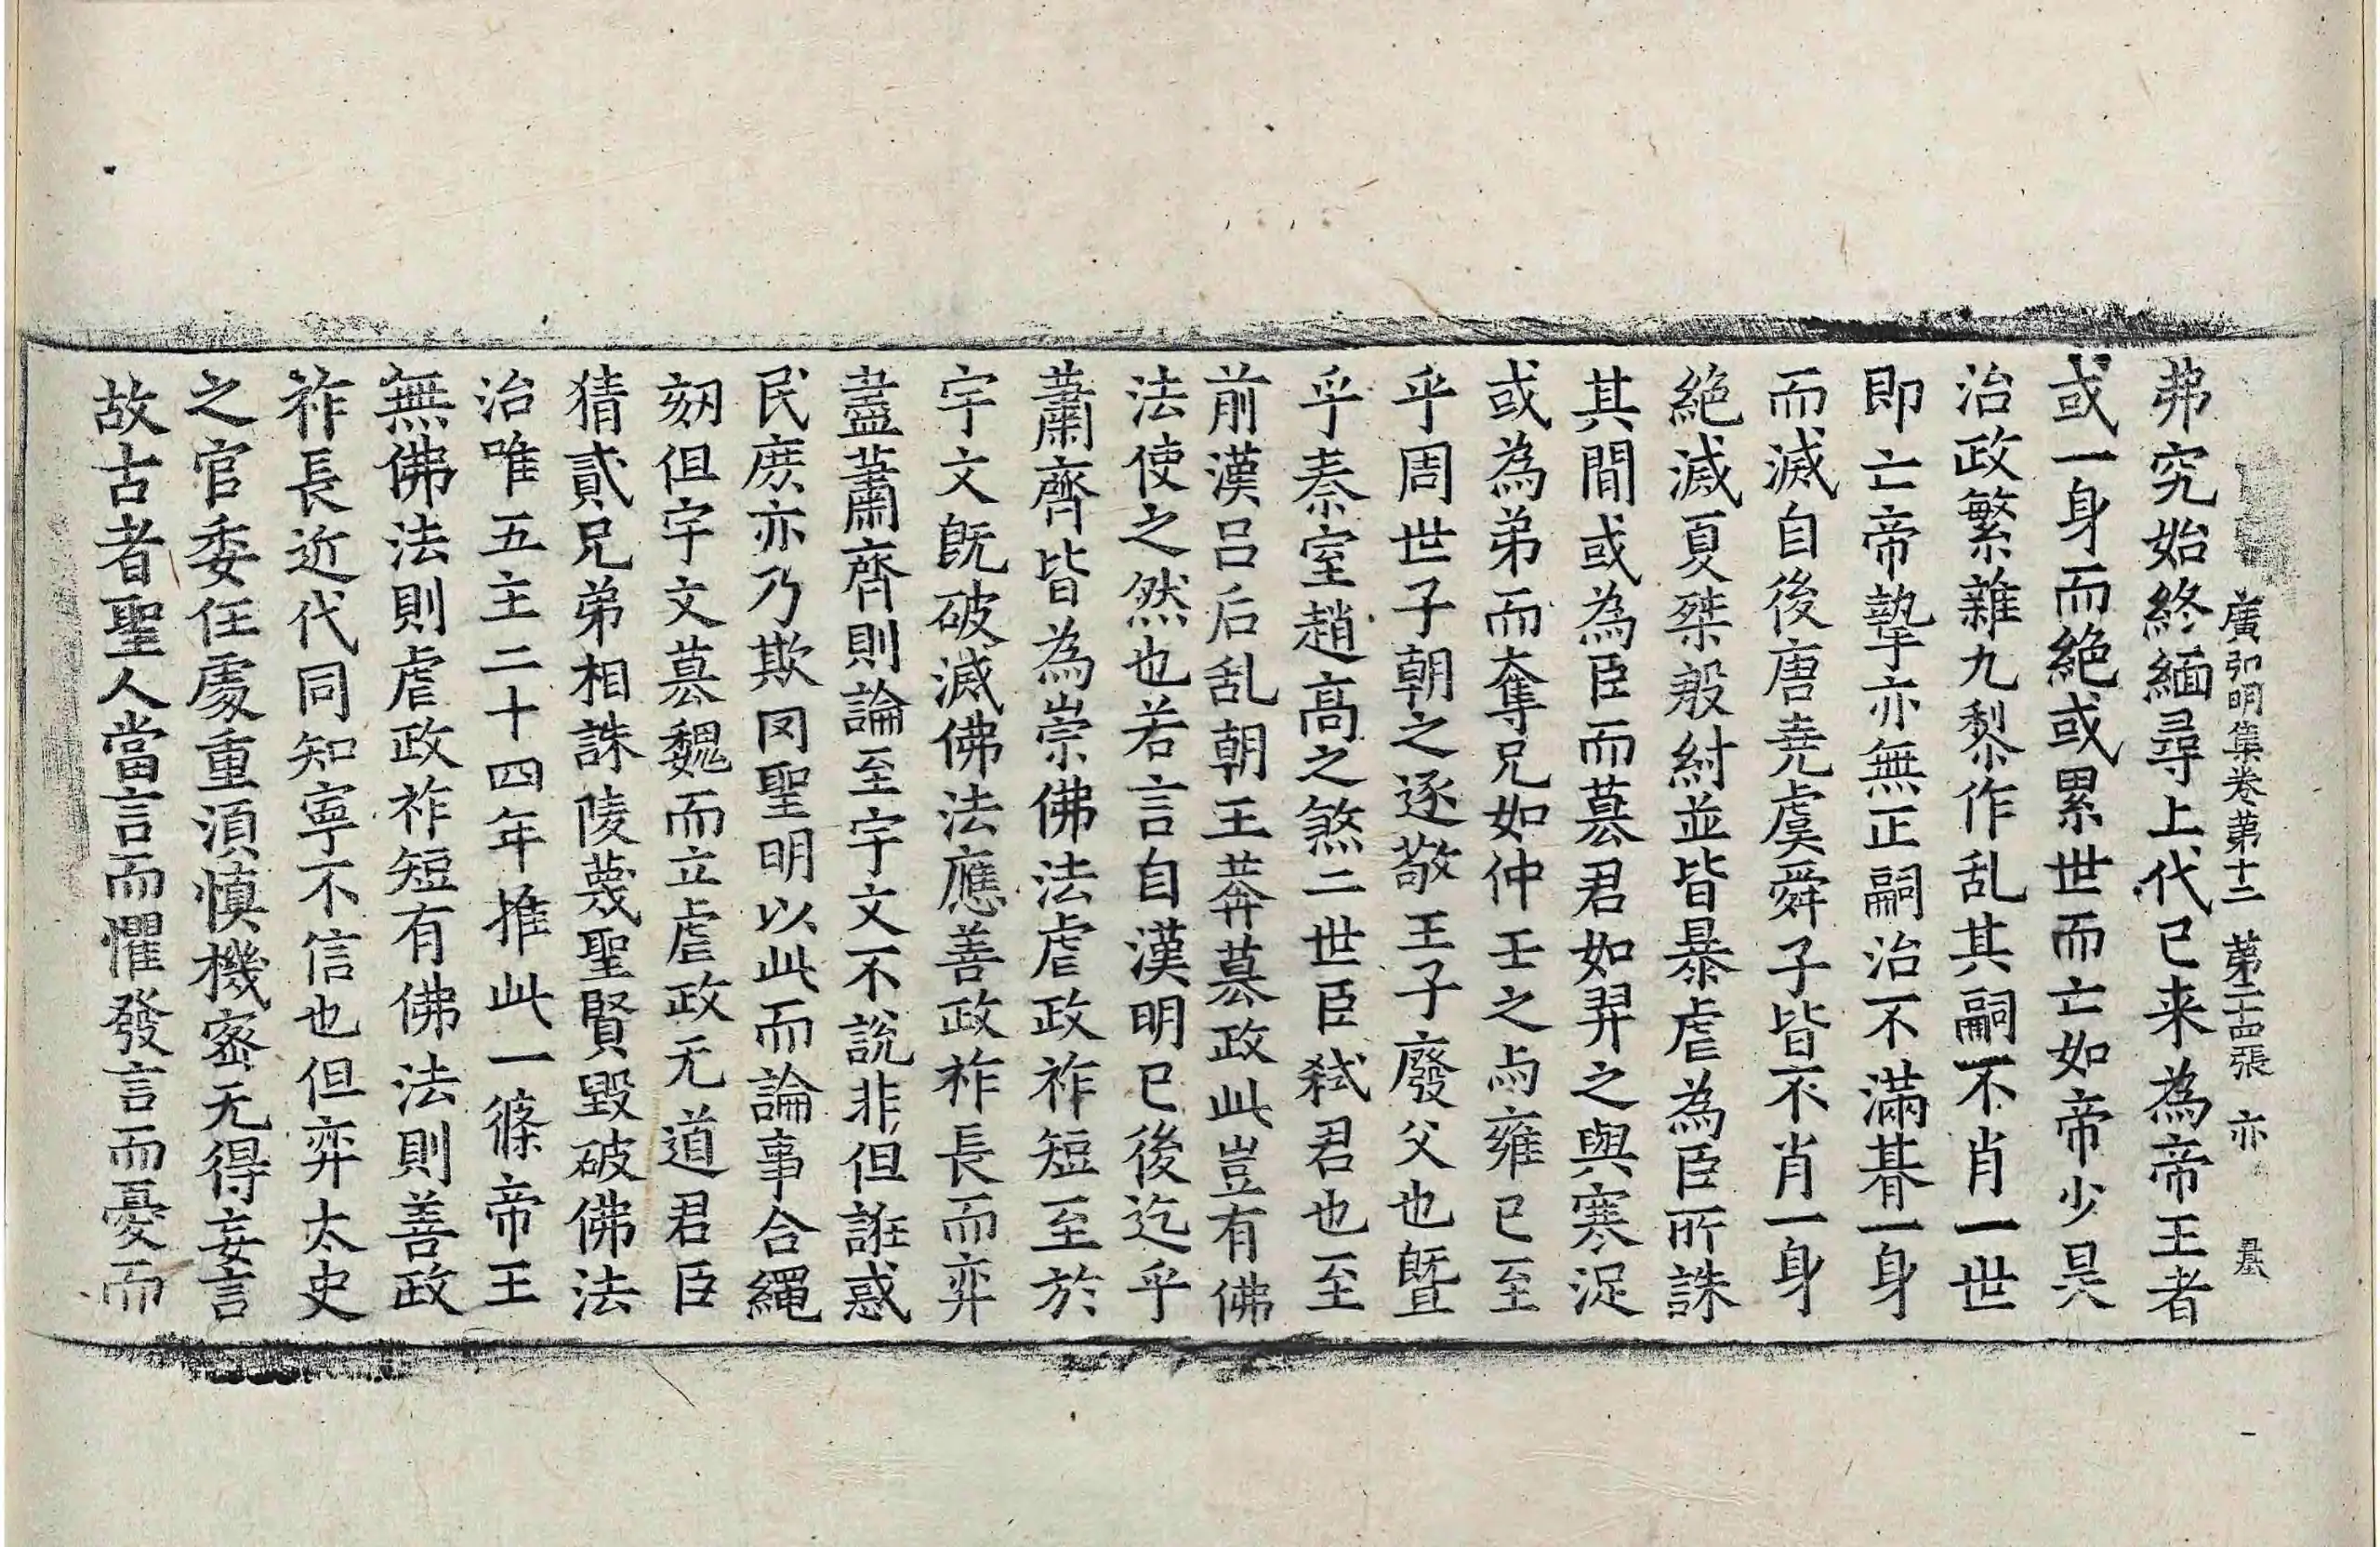 廣弘明集卷第十二 第二十四張 亦
弗究始終緬尋上代已来為帝王者
或一身而絕或累世而亡如帝少昊
治政繁雜九黎作乱其嗣不肖一世
即亡帝摯亦無正嗣治不滿朞一身
而滅自後唐堯虞舜子皆不肖一身
絕滅夏桀殷紂並皆暴虐為臣所誅
其間或為臣而墓君如羿之與寒浞
或為弟而奪兄如仲壬之与雍已至
乎周世子朝之逐敬王子廢父也曁
乎秦室趙高之煞二世臣弒君也至
前漢吕后乱朝王莽墓政此豈有佛
法使之然也若言自漢明已後迄乎
蕭齊皆為崇佛法虐政祚短至於
宇文旣破滅佛法應善政祚長而弈
盡蕭齊則論至宇文不說非但誑惑
民庶亦乃欺罔聖明以此而論事合繩
劾但宇文墓魏而立虐政无道君臣
猜貳兄弟相誅陵蔑聖賢毀破佛法
治唯五主二十四年推此一篠帝王
無佛法則虐政祚短有佛法則善政
祚長近代同知寧不信也但弈太史
之官委任處重須慎機密无得妄言
故古者聖人當言而懼發言而憂而